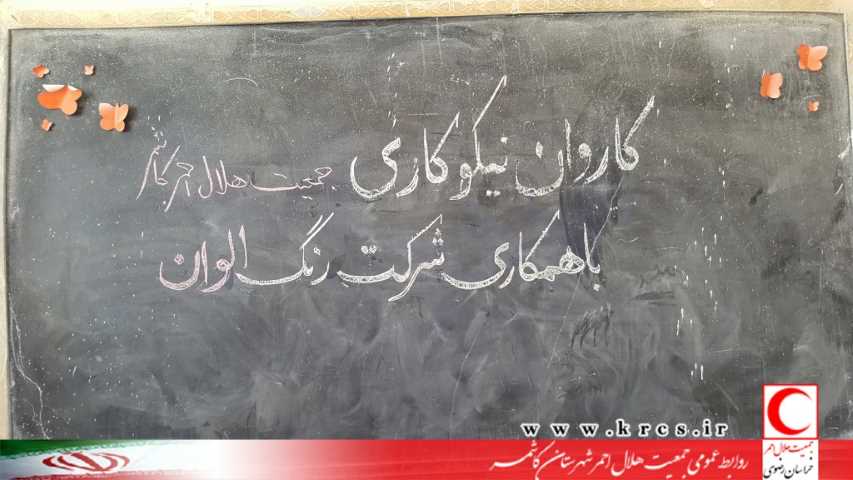 کاروان نیکوکاری جمعیت هلال احمر کاشمر
با همکاری شرکت رنگ الوان
www.krcs.ir
روابط عمومی جمعیت هلال احمر شهرستان کاشمر
جمعیت هلال احمر
خراسان رضوی